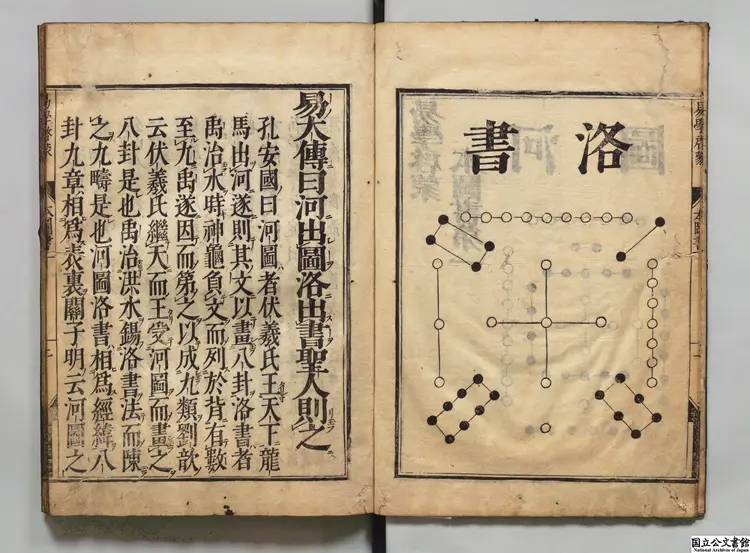 易學啓蒙
本圖書
洛書
易大傳曰河出圖洛出書聖人則之
孔安國曰河圖者伏羲氏王天下龍
馬出河遂則其文以畫八卦洛書者
禹治水時神龜負文而列於背有數
至九禹遂因而第之以成九類劉歆
云伏羲氏繼天而王受河圖而畫之
八卦是也禹治洪水錫洛書法而陳
之九疇是也河圖洛書相爲經緯八
卦九章相爲表裏關子明云河圖之
国立公文書館
National Archives of Japan